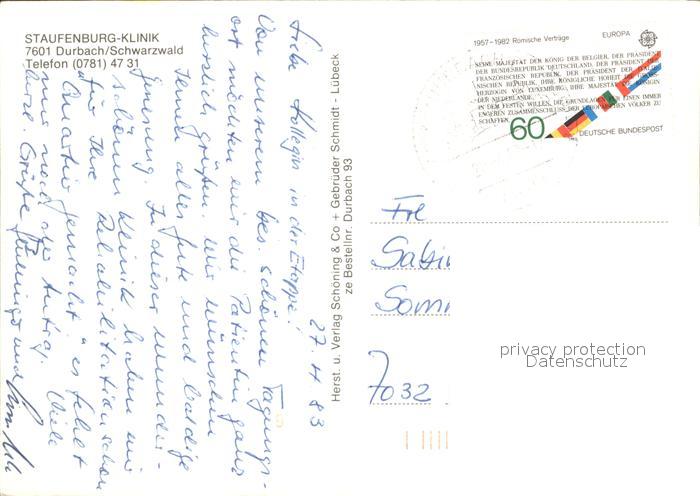 STAUFENBURG-KLINIK
7601 Durbach/Schwarzwald
Telefon (0781) 47 31
27. 4. 83
Liebe Kollegin in der Etappe!
Von unserem bes. schönen Tagungs-
ort möchten wir die Patientin ganz
herzlich grüßen. Wir wünschen
Ihnen alles Gute und baldige
Genesung. In dieser wunder-
schönen Klinik haben wir
für Ihre Rehabilitation schon
"Quartier gemacht" es fehlt
nur noch der Antrag. Viele
herzl. Grüße
und
Herst. u. Verlag Schöning & Co + Gebrüder Schmidt - Lübeck
ze Bestellnr. Durbach 93
1957-1982 Römische Verträge EUROPA
SEINE MAJESTÄT DER KÖNIG DER BELGIER, DER PRÄSIDENT
DER BUNDESREPUBLIK DEUTSCHLAND, DER PRÄSIDENT DER
FRANZÖSISCHEN REPUBLIK, DER PRÄSIDENT DER ITALIE-
NISCHEN REPUBLIK, IHRE KÖNIGLICHE HOHEIT DIE GROSS-
HERZOGIN VON LUXEMBURG, IHRE MAJESTÄT DIE KÖNIGIN
DER NIEDERLANDE,
IN DEM FESTEN WILLEN, DIE GRUNDLAGEN FÜR EINEN IMMER
ENGEREN ZUSAMMENSCHLUSS DER EUROPÄISCHEN VÖLKER ZU
SCHAFFEN
60
DEUTSCHE BUNDESPOST
Sabin
Somm
7032
privacy protection
Datenschutz